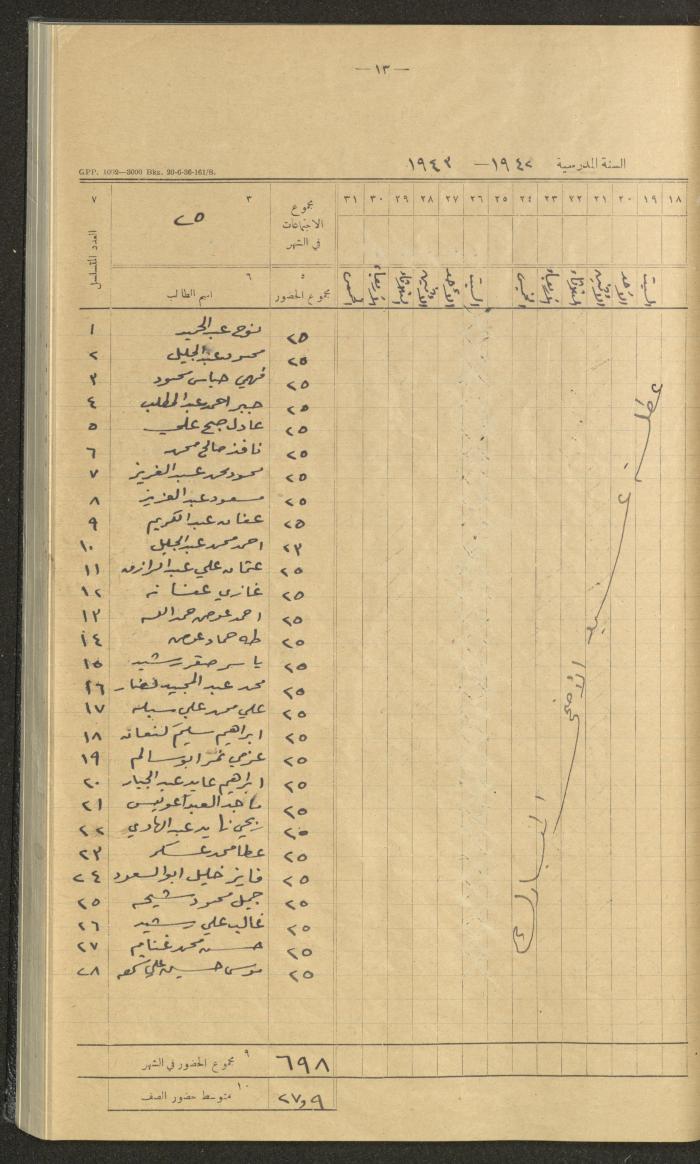 — ١٣ —
السنة المدرسية ١٩٤٢ — ١٩٤٣
GPP. 1092—3000 Bks. 20-6-36-161/S.
١٨ ١٩ ٢٠ ٢١ ٢٢ ٢٣ ٢٤ ٢٥ ٢٦ ٢٧ ٢٨ ٢٩ ٣٠ ٣١ مجموع الاجتماعات في الشهر ٣ ٢٥ ٧ العدد المتسلسل
السبت الأحد الاثنين الثلاثاء الأربعاء الخميس السبت الأحد الاثنين الثلاثاء الأربعاء الخميس ٥ مجموع الحضور ٦ اسم الطالب
عطلة عيد الأضحى المبارك
٢٥ نوح عبد الحميد ١
٢٥ محمود عبد الجليل ٢
٢٥ فهمي عباس محمود ٣
٢٥ جبر احمد عبد المطلب ٤
٢٥ عادل صبح علي ٥
٢٥ نافذ صالح محمد ٦
٢٥ محمود محمد عبد العزيز ٧
٢٥ مسعود عبد العزيز ٨
٢٥ عفان عبد الكريم ٩
٢٣ احمد محمد عبد الجليل ١٠
٢٥ عثمان علي عبد الرازق ١١
٢٥ غازي عفانه ١٢
٢٥ احمد عوض حمد الله ١٣
٢٥ طه حماد عوض ١٤
٢٥ ياسر صقر رشيد ١٥
٢٥ محمد عبد المجيد نصار ١٦
٢٥ علي محمد علي ١٧
٢٥ ابراهيم سليم كنعان ١٨
٢٥ عزمي نمر ابو سالم ١٩
٢٥ ابراهيم عايد عبد الجبار ٢٠
٢٥ ماجد العبد عويس ٢١
٢٥ ربحي زايد عبد الهادي ٢٢
٢٥ عطا محمد عسكر ٢٣
٢٥ فايز خليل ابو السعود ٢٤
٢٥ جميل محمود شيحه ٢٥
٢٥ غالب علي رشيد ٢٦
٢٥ حسن محمد غنايم ٢٧
٢٥ موسى حسين علي ٢٨
٦٩٨ ٩ مجموع الحضور في الشهر
٢٧٫٩ ١٠ متوسط حضور الصف